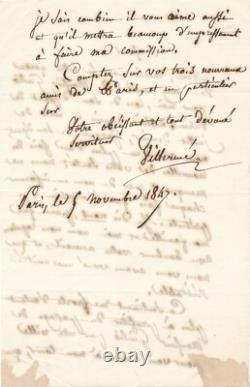 je sais combien il vous aime aussi
et qu'il mettra beaucoup d'empressement
à faire ma commission.
Comptez sur vos trois nouveaux
amis de Paris, et en particulier
sur
Votre obéissant et tout dévoué
Serviteur
Villermé
Paris, le 5 novembre 1847.